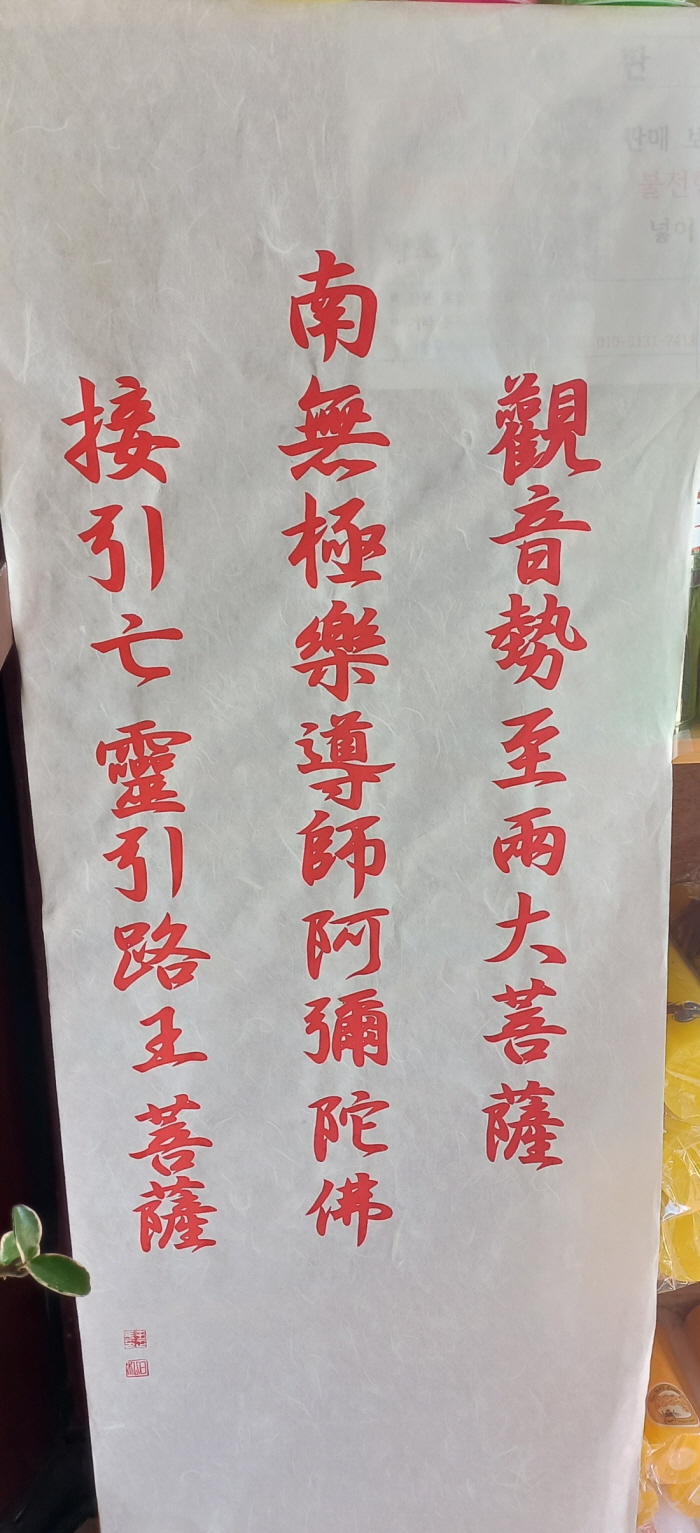 觀音勢至兩大菩薩
南無極樂導師阿彌陀佛
接引亡靈引路王菩薩
판
판매
불천
넣이